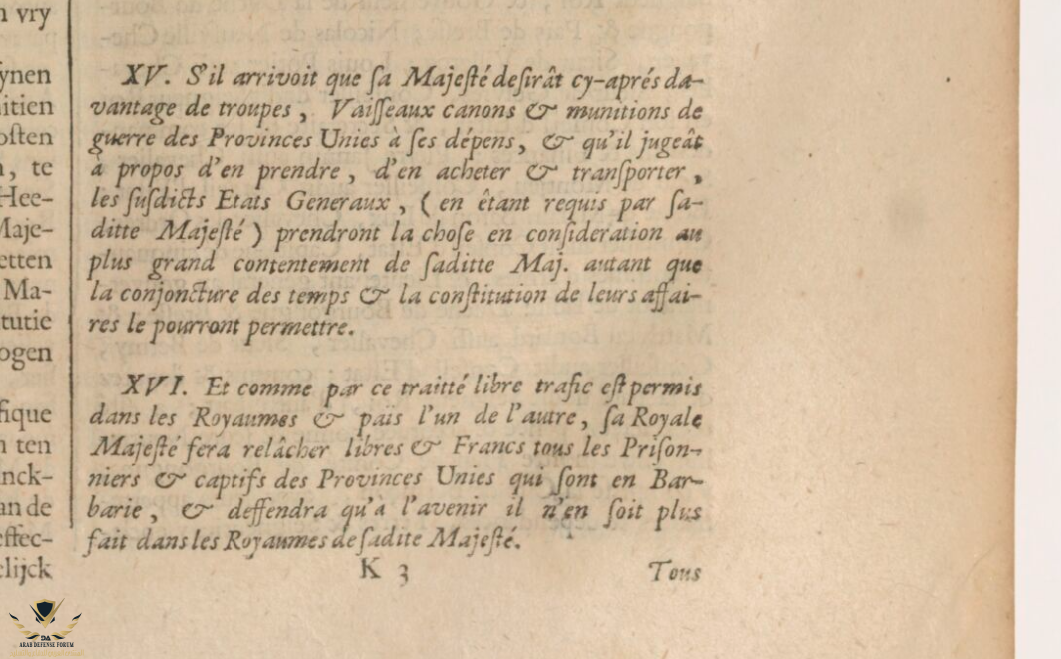 n vry
ynen
itien
often
n, te
Hee-
Maje-
etten
Ma-
tutie
ogen
fique
n ten
nck-
an de
effec-
lijck
XV. S'il arrivoit que ſa Majeſté deſirât cy-aprés da-
vantage de troupes, Vaiſſeaux canons & munitions de
guerre des Provinces Unies à ſes dépens, & qu'il jugeât
à propos d'en prendre, d'en acheter & tranſporter,
les ſuſdicts Etats Generaux, (en êtant requis par ſa-
ditte Majeſté) prendront la choſe en conſideration au
plus grand contentement de ſaditte Maj. autant que
la conjoncture des temps & la conſtitution de leurs affai-
res le pourront permettre.
XVI. Et comme par ce traitté libre trafic eſt permis
dans les Royaumes & païs l'un de l'autre, ſa Royale
Majeſté fera relâcher libres & Francs tous les Priſon-
niers & captifs des Provinces Unies qui ſont en Bar-
barie, & deffendra qu'à l'avenir il n'en ſoit plus
fait dans les Royaumes de ſadite Majeſté.
K 3 Tous
DA
ARAB DEFENSE FORUM